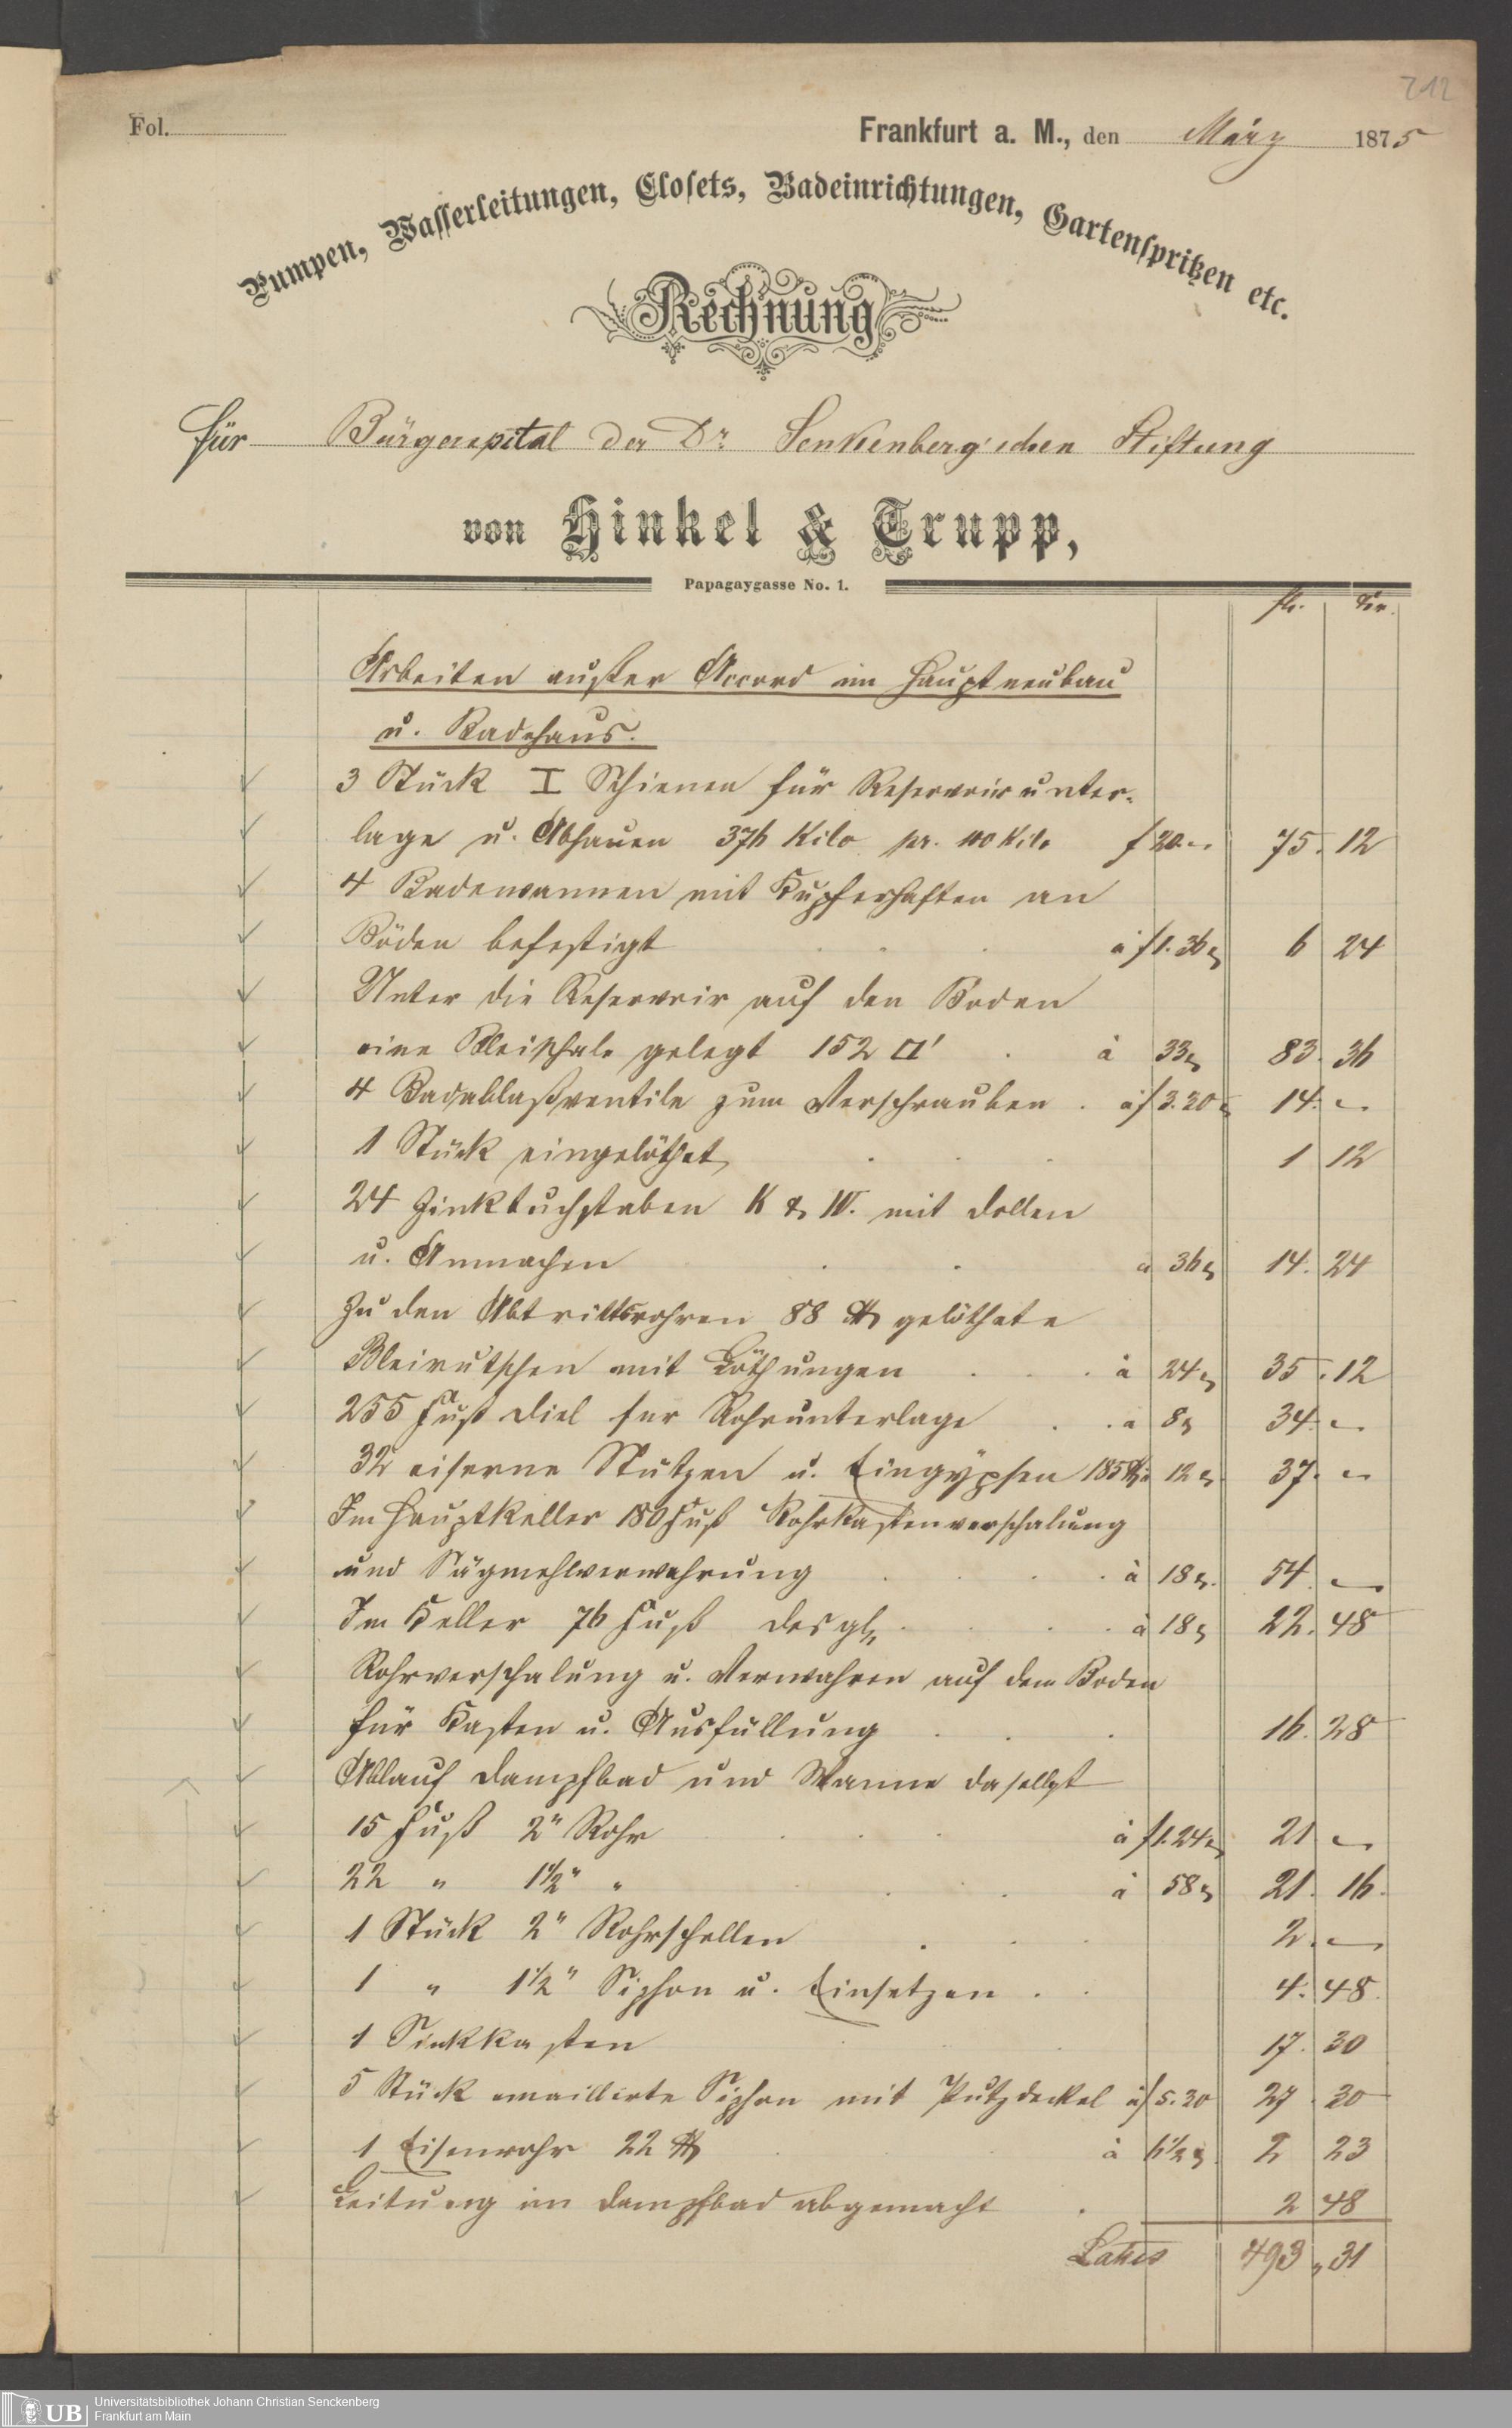 212
Fol. Frankfurt a. M., den März 1875
Pumpen, Wasserleitungen, Closets, Badeinrichtungen, Gartenspritzen etc.
Rechnung
Für Bürgerspital der Dr. Senkenberg'schen Stiftung
von Hinkel & Trupp,
Papagaygasse No. 1.
fl. Kr.
Arbeiten außer Accord im Hauptneubau
u. Badehaus.
3 Stück I Schienen für Reservoirunter-
lage u. Abhauen 376 Kilo pr. 100 Kilo f 20.– 75. 12
4 Badewannen mit Kupferhaften an
Böden befestigt à f 1. 36 6 24
Unter die Reservoir auf den Boden
eine Bleischale gelegt 152 □' à 33 83. 36
4 Badablaßventile zum Verschrauben à f 3. 30 14. –
1 Stück eingelöthet 1 12
24 Zinkbuchstaben K & W. mit Dollen
u. Anmachen à 36 14. 24
Zu den Abtrittsrohren 88 ℔ gelöthete
Bleirutschen mit Löthungen à 24 35. 12
255 Fuß Diel für Rohrunterlage à 8 34. –
32 eiserne Stützen u. Eingypsen 185 ℔ à 12 37. –
Im Hauptkeller 180 Fuß Rohrkastenverschalung
und Sägmehlverwahrung à 18 54. –
Im Keller 76 Fuß desgl. à 18 22. 48
Rohrverschalung u. Verwahren auf dem Boden
für Kasten u. Ausfüllung 16. 28
Ablauf Dampfbad und Wanne daselbst
15 Fuß 2" Rohr à f 1. 24 21 –
22 " 1½" " à 58 21. 16.
1 Stück 2" Rohrschellen 2. –
1 " 1½" Siphon u. Einsetzen 4. 48.
1 Sinkkasten 17. 30
5 Stück emaillirte Siphon mit Putzdeckel à f 5. 30 27. 30
1 Eisenrohr 22 ℔ à 6½ 2 23
Leitung im Dampfbad abgemacht 2 48
Latus 493 " 31
UB
Universitätsbibliothek Johann Christian Senckenberg
Frankfurt am Main